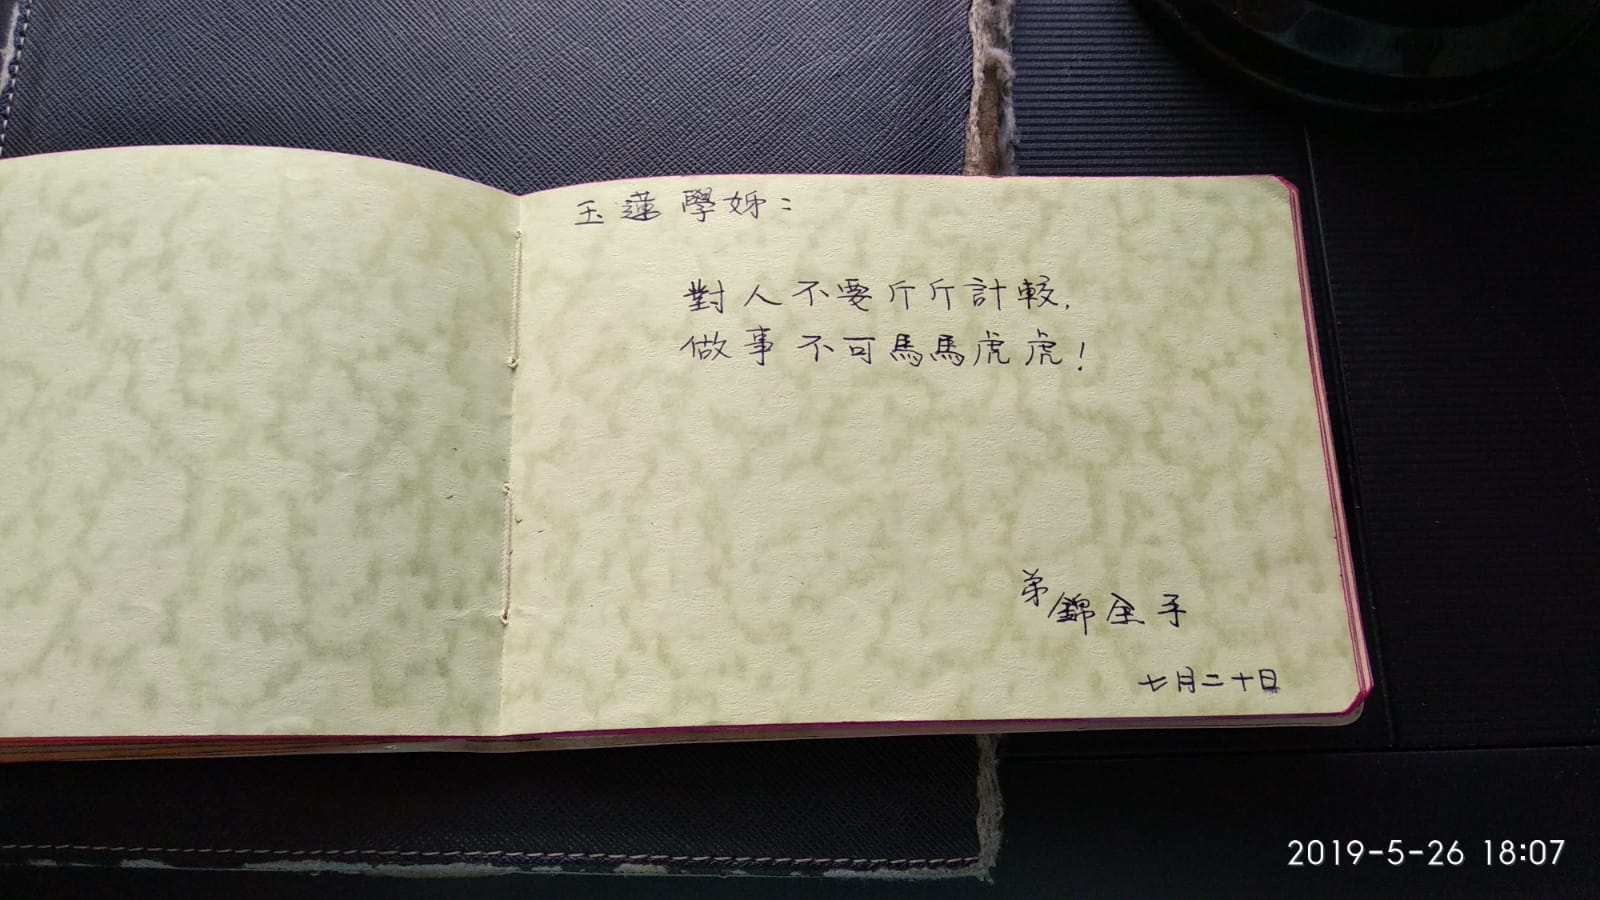 玉蓮學姊：
對人不要斤斤計較，
做事不可馬馬虎虎！
弟錦全手
七月二十日
2019-5-26 18:07